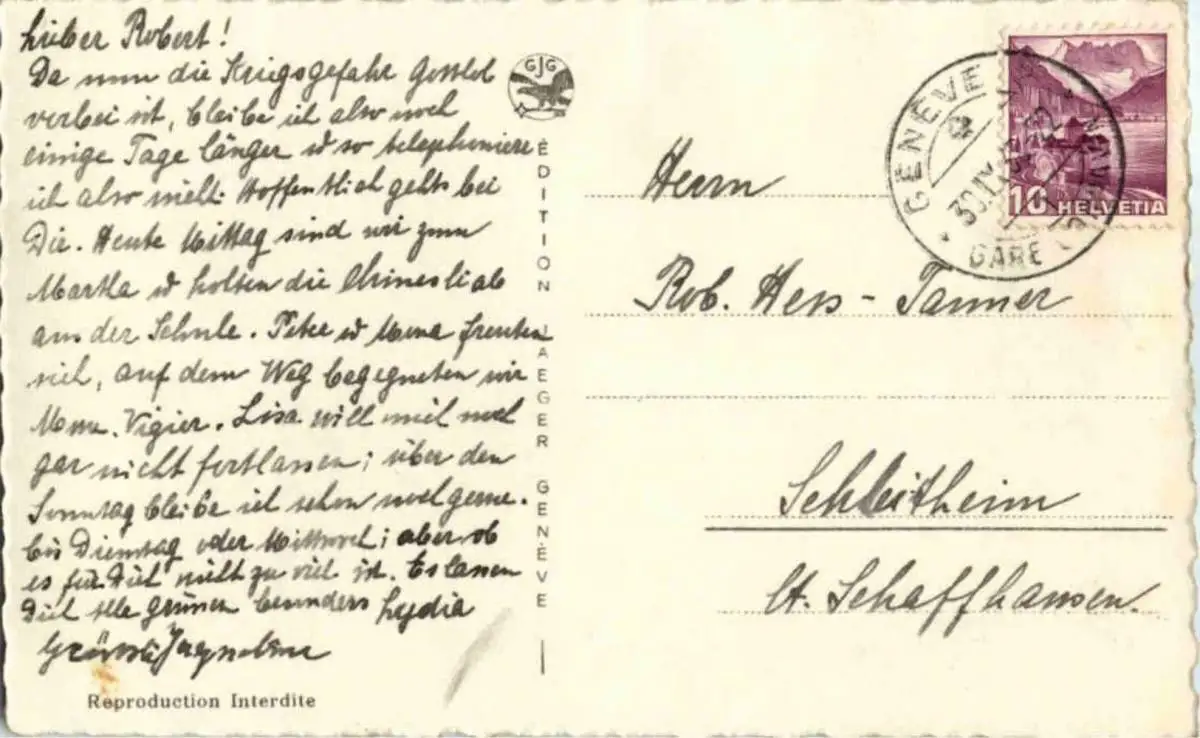 Lieber Robert!
Da nun die Kriegsgefahr Gottlob
vorbei ist, bleibe ich also noch
einige Tage länger & so telephoniere
ich also nicht. Hoffentlich gehts bei
Dir. Heute Mittag sind wir zum
Martha & holten die Chinesli ab
aus der Schule. Peter & Mona freuten
sich, auf dem Weg begegneten wir
Mme. Vigier. Lisa will mich noch
gar nicht fortlassen; über den
Sonntag bleibe ich schon noch gerne.
bis Dienstag oder Mittwoch; aber ob
es für Dich nicht zu viel ist. Es lassen
Dich alle grüssen besonders Lydia
Reproduction Interdite
GJG
EDITION JAEGER GENÈVE
GENÈVE
30.IX
GARE
10 HELVETIA
Herrn
Rob. Hess - Tanner
Schleitheim
Ct. Schaffhausen.